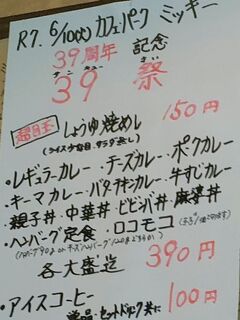 R7. 6/10(火) カフェパーク ミッキー
39周年 記念
サンキュー まつり
39 祭
超目玉 しょうゆ焼めし 150円
(ライス少な目、サラダ無し)
・レギュラーカレー・チーズカレー・ポークカレー
・キーマカレー・バタチキンカレー・牛すじカレー
・親子丼・中華丼・ビビンバ丼・麻婆丼
・ハンバーグ定食・ロコモコ
各大盛迄 390円
・アイスコーヒー 100円
単品・セットドリンク共に